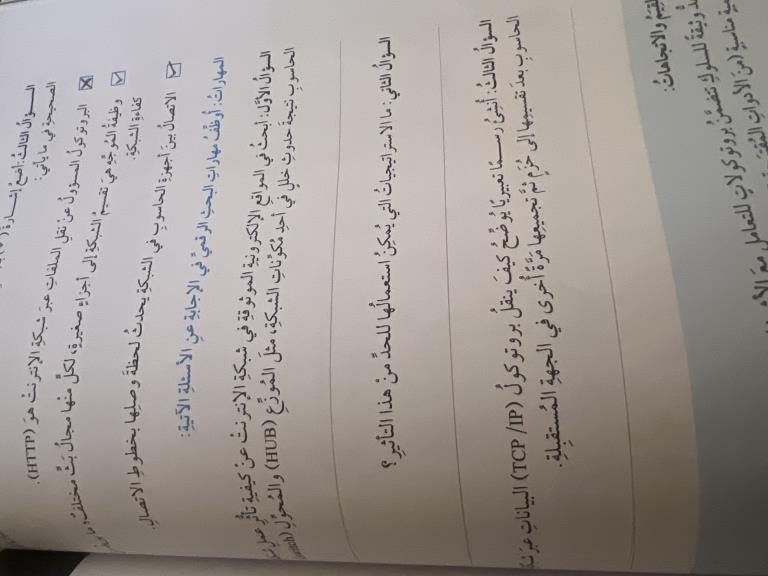 السؤال الثالث: أضعُ إشارةَ
الصحيحةِ في ما يأتي:
البروتوكولُ المسؤولُ عنْ نقلِ الملفاتِ عبرَ شبكةِ الإنترنتْ هوَ (HTTP).
وظيفةُ المُوَجِّهِ هيَ تقسيمُ الشبكةِ إلى أجزاءٍ صغيرةٍ، لكلٍّ منْها مجالُ بَثٍّ مختلفٌ؛
كفاءةِ الشبكةِ.
الاتصالُ بينَ أجهزةِ الحاسوبِ في الشبكةِ يحدثُ لحظةَ وصلِها بخطوطِ الاتصالِ.
المهاراتُ: أُوظِّفُ مهاراتِ البحثِ الرقميِّ في الإجابةِ عنِ الأسئلةِ الآتيةِ:
السؤالُ الأوَّلُ: أبحثُ في المواقعِ الإلكترونيةِ الموثوقةِ في شبكةِ الإنترنتْ عنْ كيفيةِ تأثُّرِ عملِ
الحاسوبِ نتيجةَ حدوثِ خللٍ في أحدِ مُكوِّناتِ الشبكةِ، مثلَ المُوزِّعِ (HUB) والمُحوِّلِ
السؤالُ الثاني: ما الاستراتيجياتُ التي يُمكِنُ استعمالُها للحدِّ منْ هذا التأثيرِ؟
السؤالُ الثالثُ: أُنشِئُ رسمًا تعبيريًّا يُوضِّحُ كيفَ ينقلُ بروتوكولُ (TCP/IP) البياناتِ عبرَ
الحاسوبِ بعدَ تقسيمِها إلى حُزَمٍ ثمَّ تجميعِها مرَّةً أُخرى في الجهةِ المُستقبِلةِ.
القِيَمُ والاتجاهاتُ:
وثيقةً للسلوكِ تتضمَّنُ بروتوكولاتٍ للتعاملِ معَ
مناسبةٍ (منَ الأدواتِ